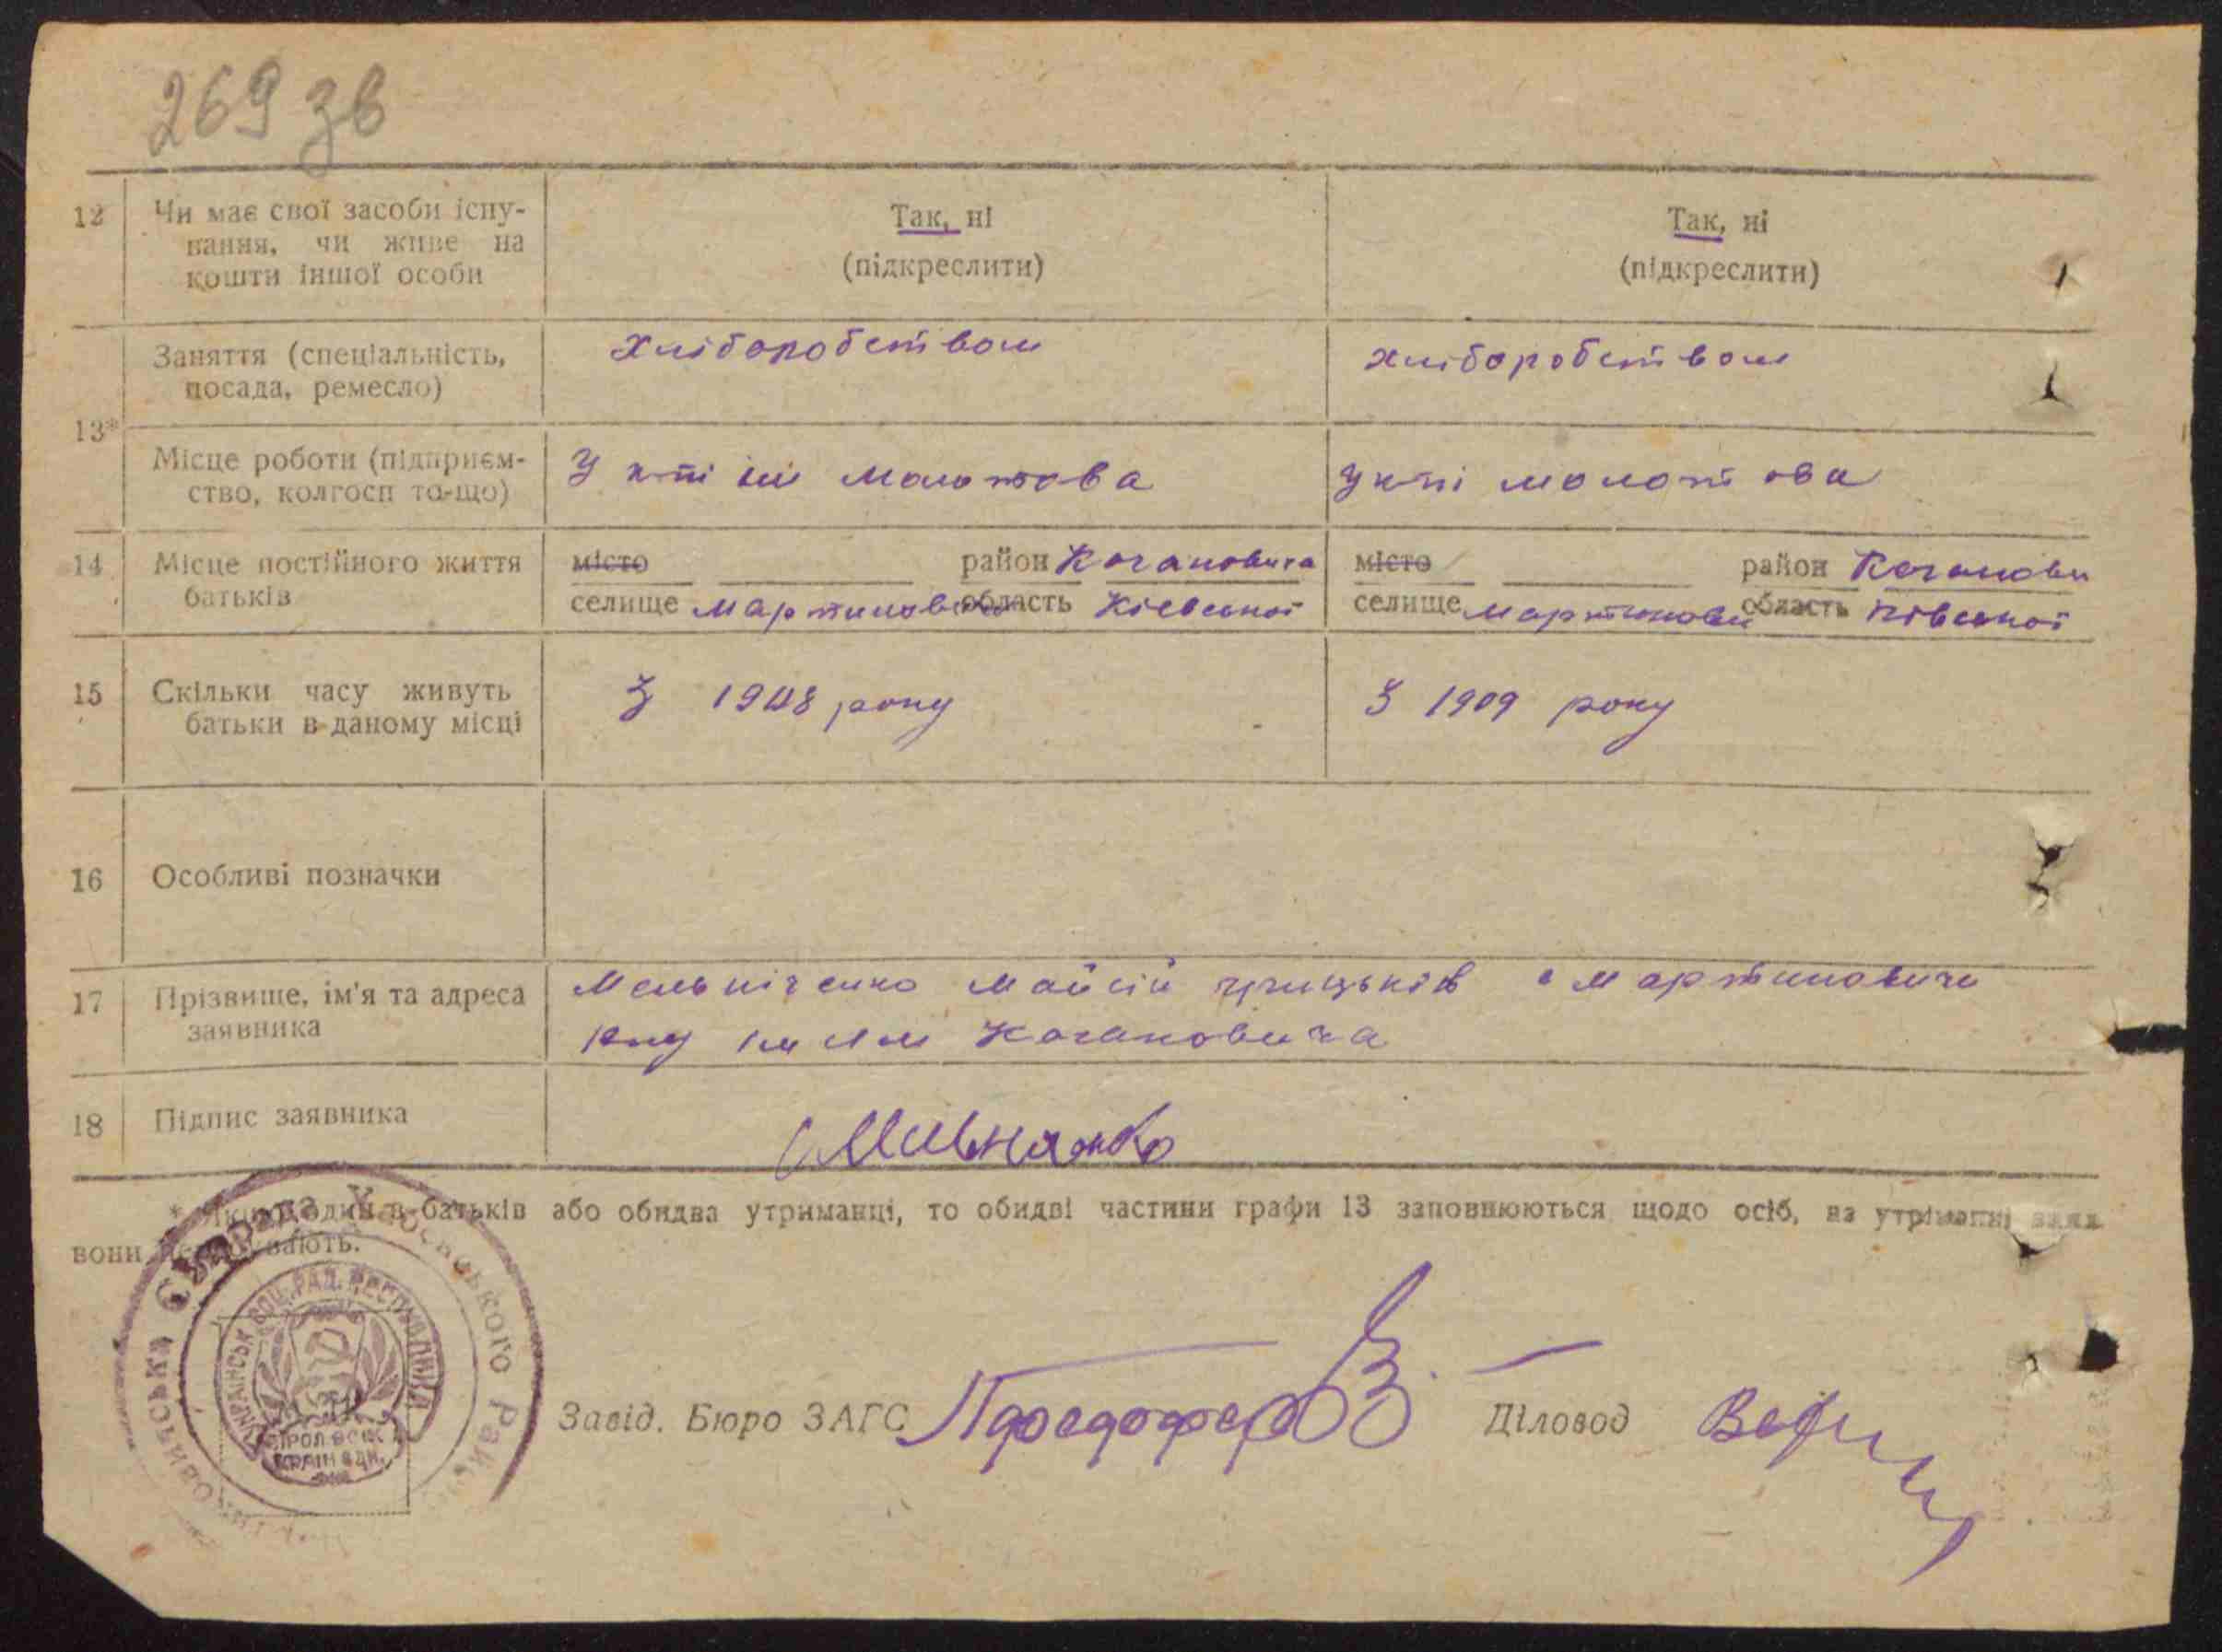 269 зв
12 Чи має свої засоби існу-
вання, чи живе на
кошти іншої особи
Так, ні
(підкреслити)
Так, ні
(підкреслити)
13*
Заняття (спеціальність,
посада, ремесло)
Хліборобством
хліборобством
Місце роботи (підприєм-
ство, колгосп то-що)
У к-пі ім молотова
У к-пі молотова
14 Місце постійного життя
батьків
місто район Кагановича
селище Мартиновичі область Кієвської
місто район Каганови
селище Мартинови область Ківської
15 Скільки часу живуть
батьки в даному місці
З 1908 року
З 1909 року
16 Особливі позначки
17 Прізвище, ім'я та адреса
заявника
Мельніченко Майсій грицьків с Мартиновичі
Кагановича
18 Підпис заявника
* Якщо один в батьків або обидва утриманці, то обидві частини графи 13 заповнюються щодо осіб, на утріманні яких
вони
Завід. Бюро ЗАГС
Діловод
УКРАЇНСЬК. СОЦ. РАД. РЕСПУБЛІКА